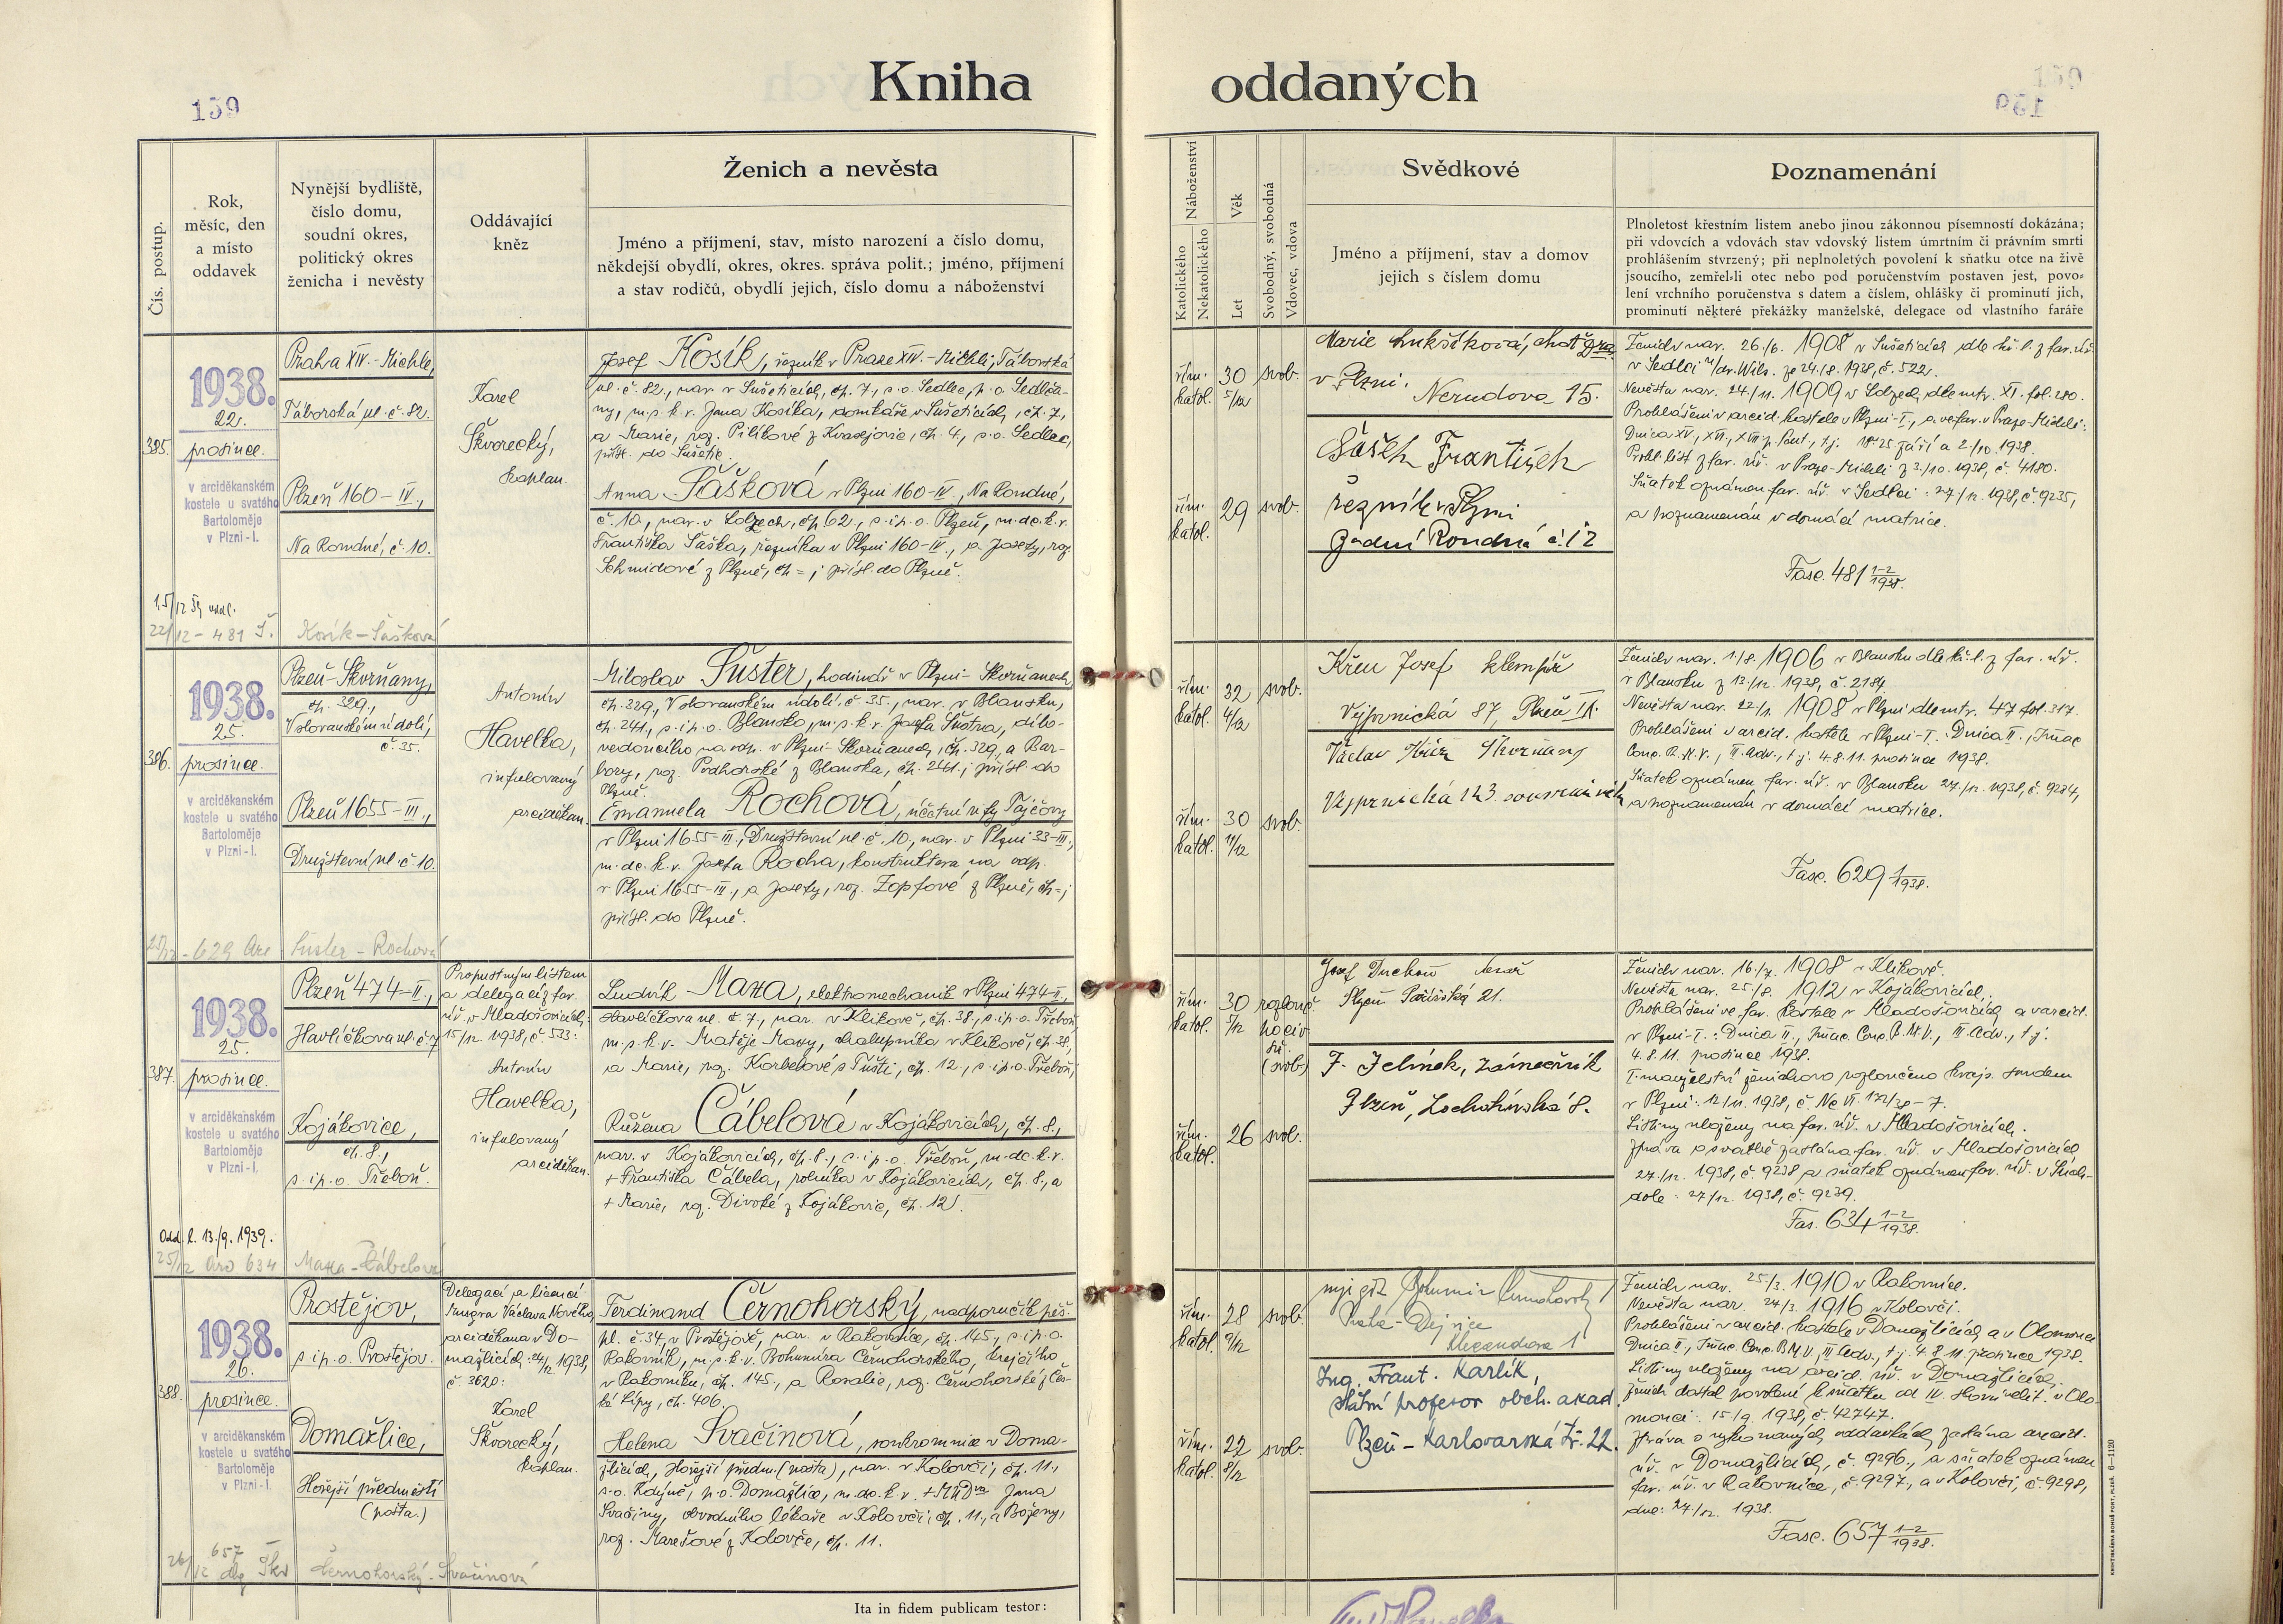 Kniha oddaných
159
Čís. postup.
Rok,
měsíc, den
a místo
oddavek
Nynější bydliště,
číslo domu,
soudní okres,
politický okres
ženicha i nevěsty
Oddávající
kněz
Ženich a nevěsta
Jméno a příjmení, stav, místo narození a číslo domu,
někdejší obydlí, okres, okres. správa polit.; jméno, příjmení
a stav rodičů, obydlí jejich, číslo domu a náboženství
Náboženství
Katolického
Nekatolického
Věk
Let
Svobodný, svobodná
Vdovec, vdova
Svědkové
Jméno a příjmení, stav a domov
jejich s číslem domu
Poznamenání
Plnoletost křestním listem anebo jinou zákonnou písemností dokázána;
při vdovcích a vdovách stav vdovský listem úmrtním či právním smrti
prohlášením stvrzený; při neplnoletých povolení k sňatku otce na živě
jsoucího, zemřel-li otec nebo pod poručenstvím postaven jest, povo-
lení vrchního poručenstva s datem a číslem, ohlášky či prominutí jich,
prominutí některé překážky manželské, delegace od vlastního faráře
385.
1938.
22.
prosince.
v arciděkanském
kostele u svatého
Bartoloměje
v Plzni-I.
Praha XIV.-Michle,
Táborská ul. č. 82.
Plzeň 160-IV.,
Na Rondné, č. 10.
Karel
Škvorecký,
kaplan.
Josef Kosík, řezník v Praze XIV.-Michli, Táborská
ul. č. 82, nar. v Sušeticích, čp. 7, s.o. Sedlec, p.o. Sedlča-
ny, m.s.k.v. Jana Kosíka, domkáře v Sušeticích, čp. 7,
a Marie, roz. Pilíkové z Kvasejovic, čp. 4, s.o. Sedlec,
přísl. do Sušetic.
Anna Šašková v Plzni 160-IV., Na Rondné,
č. 10, nar. v Lobzech, čp. 62, s.i p.o. Plzeň, m.dc.k.v.
Františka Šaška, řezníka v Plzni 160-IV., a Josefy, roz.
Schmidové z Plzně, čp =; přísl. do Plzně.
22/12 - 481 Š.
Kosík - Šašková
řím. katol.
30 5/12
svob.
řím. katol.
29
svob.
Marie Lukšíková, choť
v Plzni. Nerudova 15.
Šašek František
řezník v Plzni
Zadní Rondná č. 12
Ženich nar. 26./6. 1908 v Sušeticích dle kř. l. z far. úř.
v Sedlci ze 24./8. 1938, č. 522.
Nevěsta nar. 24./11. 1909 v Lobzech, dle mtr. XI. fol. 280.
Prohlášeni v arcid. kostele v Plzni-I., a ve far. v Praze-Michli:
Dnica XV., XVI., XVII. p. Pent., t.j. 18. 25. září a 2./10. 1938.
Prohl. list z far. úř. v Praze-Michli z 3./10. 1938, č. 4180.
Sňatek oznámen far. úř. v Sedlci: 27/12. 1938, č. 9235,
a poznamenán v domácí matrice.
Fasc. 481 1-2/1938.
386.
1938.
25.
prosince.
v arciděkanském
kostele u svatého
Bartoloměje
v Plzni-I.
Plzeň-Skvrňany,
čp. 329.,
V slovanském údolí,
č. 35.
Plzeň 1655-III.,
Družstevní ul. č. 10.
Antonín
Havelka,
infulovaný
arciděkan.
Miloslav Šuster, hodinář v Plzni-Skvrňanech,
čp. 329, V slovanském údolí č. 35., nar. v Blansku,
čp. 241, s.i p.o. Blansko, m.s.k.v. Josefa Šustra, dílo-
vedoucího na odp. v Plzni-Skvrňanech, čp. 329, a Bar-
bory, roz. Podhorské z Blanska, čp. 241.; přísl. do
Plzně.
Emanuela Rochová, účetní u fy Tajčovy
v Plzni 1655-III., Družstevní ul. č. 10, nar. v Plzni 33-III.,
m.dc.k.v. Josefa Rocha, konstruktera na odp.
v Plzni 1655-III., a Josefy, roz. Zopfové z Plzně, čp =;
přísl. do Plzně.
25/12 - 629 Arc
Šuster - Rochová
řím. katol.
32 4/12
svob.
řím. katol.
30 11/12
svob.
Křen Josef klempíř
Vejprnická 87, Plzeň IX.
Václav Kříž Skvrňany
Vejprnická 143.
Ženich nar. 1./8. 1906 v Blansku dle kř. l. z far. úř.
v Blansku z 13./12. 1938, č. 2184.
Nevěsta nar. 22./1. 1908 v Plzni dle mtr. 47 fol. 317.
Prohlášeni v arcid. kostele v Plzni-I.: Dnica II., Imac.
Conc. B.M.V., III. Adv., t.j. 4. 8. 11. prosince 1938.
Sňatek oznámen far. úř. v Blansku 27./12. 1938, č. 9234,
a poznamenán v domácí matrice.
Fasc. 629 1/1938.
387.
1938.
25.
prosince.
v arciděkanském
kostele u svatého
Bartoloměje
v Plzni-I.
Plzeň 474-II.,
Havlíčkova ul. č. 7
Kojákovice,
čp. 8.,
s.i p.o. Třeboň.
Propustným listem
a delegací z far.
úř. v Mladošovicích:
15/12. 1938, č. 533:
Antonín
Havelka,
infulovaný
arciděkan.
Ludvík Maxa, elektromechanik v Plzni 474-II.,
Havlíčkova ul. č. 7., nar. v Klikově, čp. 38., s.i p.o. Třeboň,
m.s.k.v. Matěje Maxy, chalupníka v Klikově, čp. 38,
a Marie, roz. Korbelové s Tušti, čp. 12, s.i p.o. Třeboň;
Růžena Čábelová v Kojákovicích, čp. 8.,
nar. v Kojákovicích, čp. 8., s.i p.o. Třeboň, m.dc.k.v.
+ Františka Čábela, rolníka v Kojákovicích, čp. 8., a
+ Marie, roz. Divoké z Kojákovic, čp. 12.
Odd. l. 13./9. 1939.
25/12 Arc 634
Maxa - Čábelová
řím. katol.
30 5/12
rozlouč.
po civ.
(svob.)
řím. katol.
26
svob.
Josef Duchoň
Plzeň Pařížská 21.
F. Jelínek, zámečník
Plzeň, Lochotínská 8.
Ženich nar. 16./7. 1908 v Klikově.
Nevěsta nar. 25./8. 1912 v Kojákovicích.
Prohlášeni ve far. kostele v Mladošovicích a v arcid.
v Plzni-I.: Dnica II., Imac. Conc. B.M.V., III. Adv., t.j.
4. 8. 11. prosince 1938.
I. manželství ženichovo rozloučeno kraj. soudem
v Plzni: 12/11. 1938, č. Nc VI. 172/38-7.
Listiny uloženy na far. úř. v Mladošovicích.
Zpráva o svatbě zaslána far. úř. v Mladošovicích
27/12. 1938, č. 9238 a sňatek oznámen far. úř. v Such-
dole: 27/12. 1938, č. 9239.
Fas. 634 1-2/1938.
388.
1938.
26.
prosince.
v arciděkanském
kostele u svatého
Bartoloměje
v Plzni-I.
Prostějov,
s i p.o. Prostějov.
Domažlice,
Hořejší předměstí
(pošta.)
Delegací a licencí
Msgra Václava Nového,
arciděkana v Do-
mažlicích: 24/12. 1938,
č. 3628:
Karel
Škvorecký,
kaplan.
Ferdinand Černohorský, nadporučík pěš.
pl. č. 34, v Prostějově, nar. v Rakovníce, čp. 145, s.i p.o.
Rakovník, m.s.k.v. Bohumíra Černohorského, krejčího
v Rakovníku, čp. 145., a Rosalie, roz. Černohorské z Čes-
ké Lípy, čp. 406.
Helena Svačinová, soukromnice v Doma-
žlicích, Hořejší předm. (pošta), nar. v Kolovči, čp. 11.,
s.o. Kdyně, p.o. Domažlice, m.dc.k.v. + MUDra Jana
Svačiny, obvodního lékaře v Kolovči, čp. 11., a Boženy,
roz. Marešové z Kolovče, čp. 11.
26/12 657
Černohorský - Svačinová
řím. katol.
28 9/12
svob.
řím. katol.
22 8/12
svob.
Bohumír Černohorský
Praha - Dejvice
Ing. Frant. Karlík,
státní profesor obch. akad.
Plzeň - Karlovarská tř. 22.
Ženich nar. 25/3. 1910 v Rakovníce.
Nevěsta nar. 24/3. 1916 v Kolovči.
Prohlášeni v arcid. kostele v Domažlicích a v Olomouci
Dnica II., Imac. Conc. B.M.V., III. Adv., t.j. 4. 8. 11. prosince 1938.
Listiny uloženy na arcid. úř. v Domažlicích.
Ženich dostal povolení k sňatku od IV. sboru velit. v Olo-
mouci: 15/9. 1938, č. 42747.
Zpráva o vykonaných oddavkách zaslána arcid.
úř. v Domažlicích, č. 9296., a sňatek oznámen
far. úř. v Rakovníce, č. 9297, a v Kolovči, č. 9298,
dne: 27/12. 1938.
Fasc. 657 1-2/1938.
Ita in fidem publicam testor:
KNIHTISKÁRNA BOHUŠ PORT, PLZEŇ. 6—1120